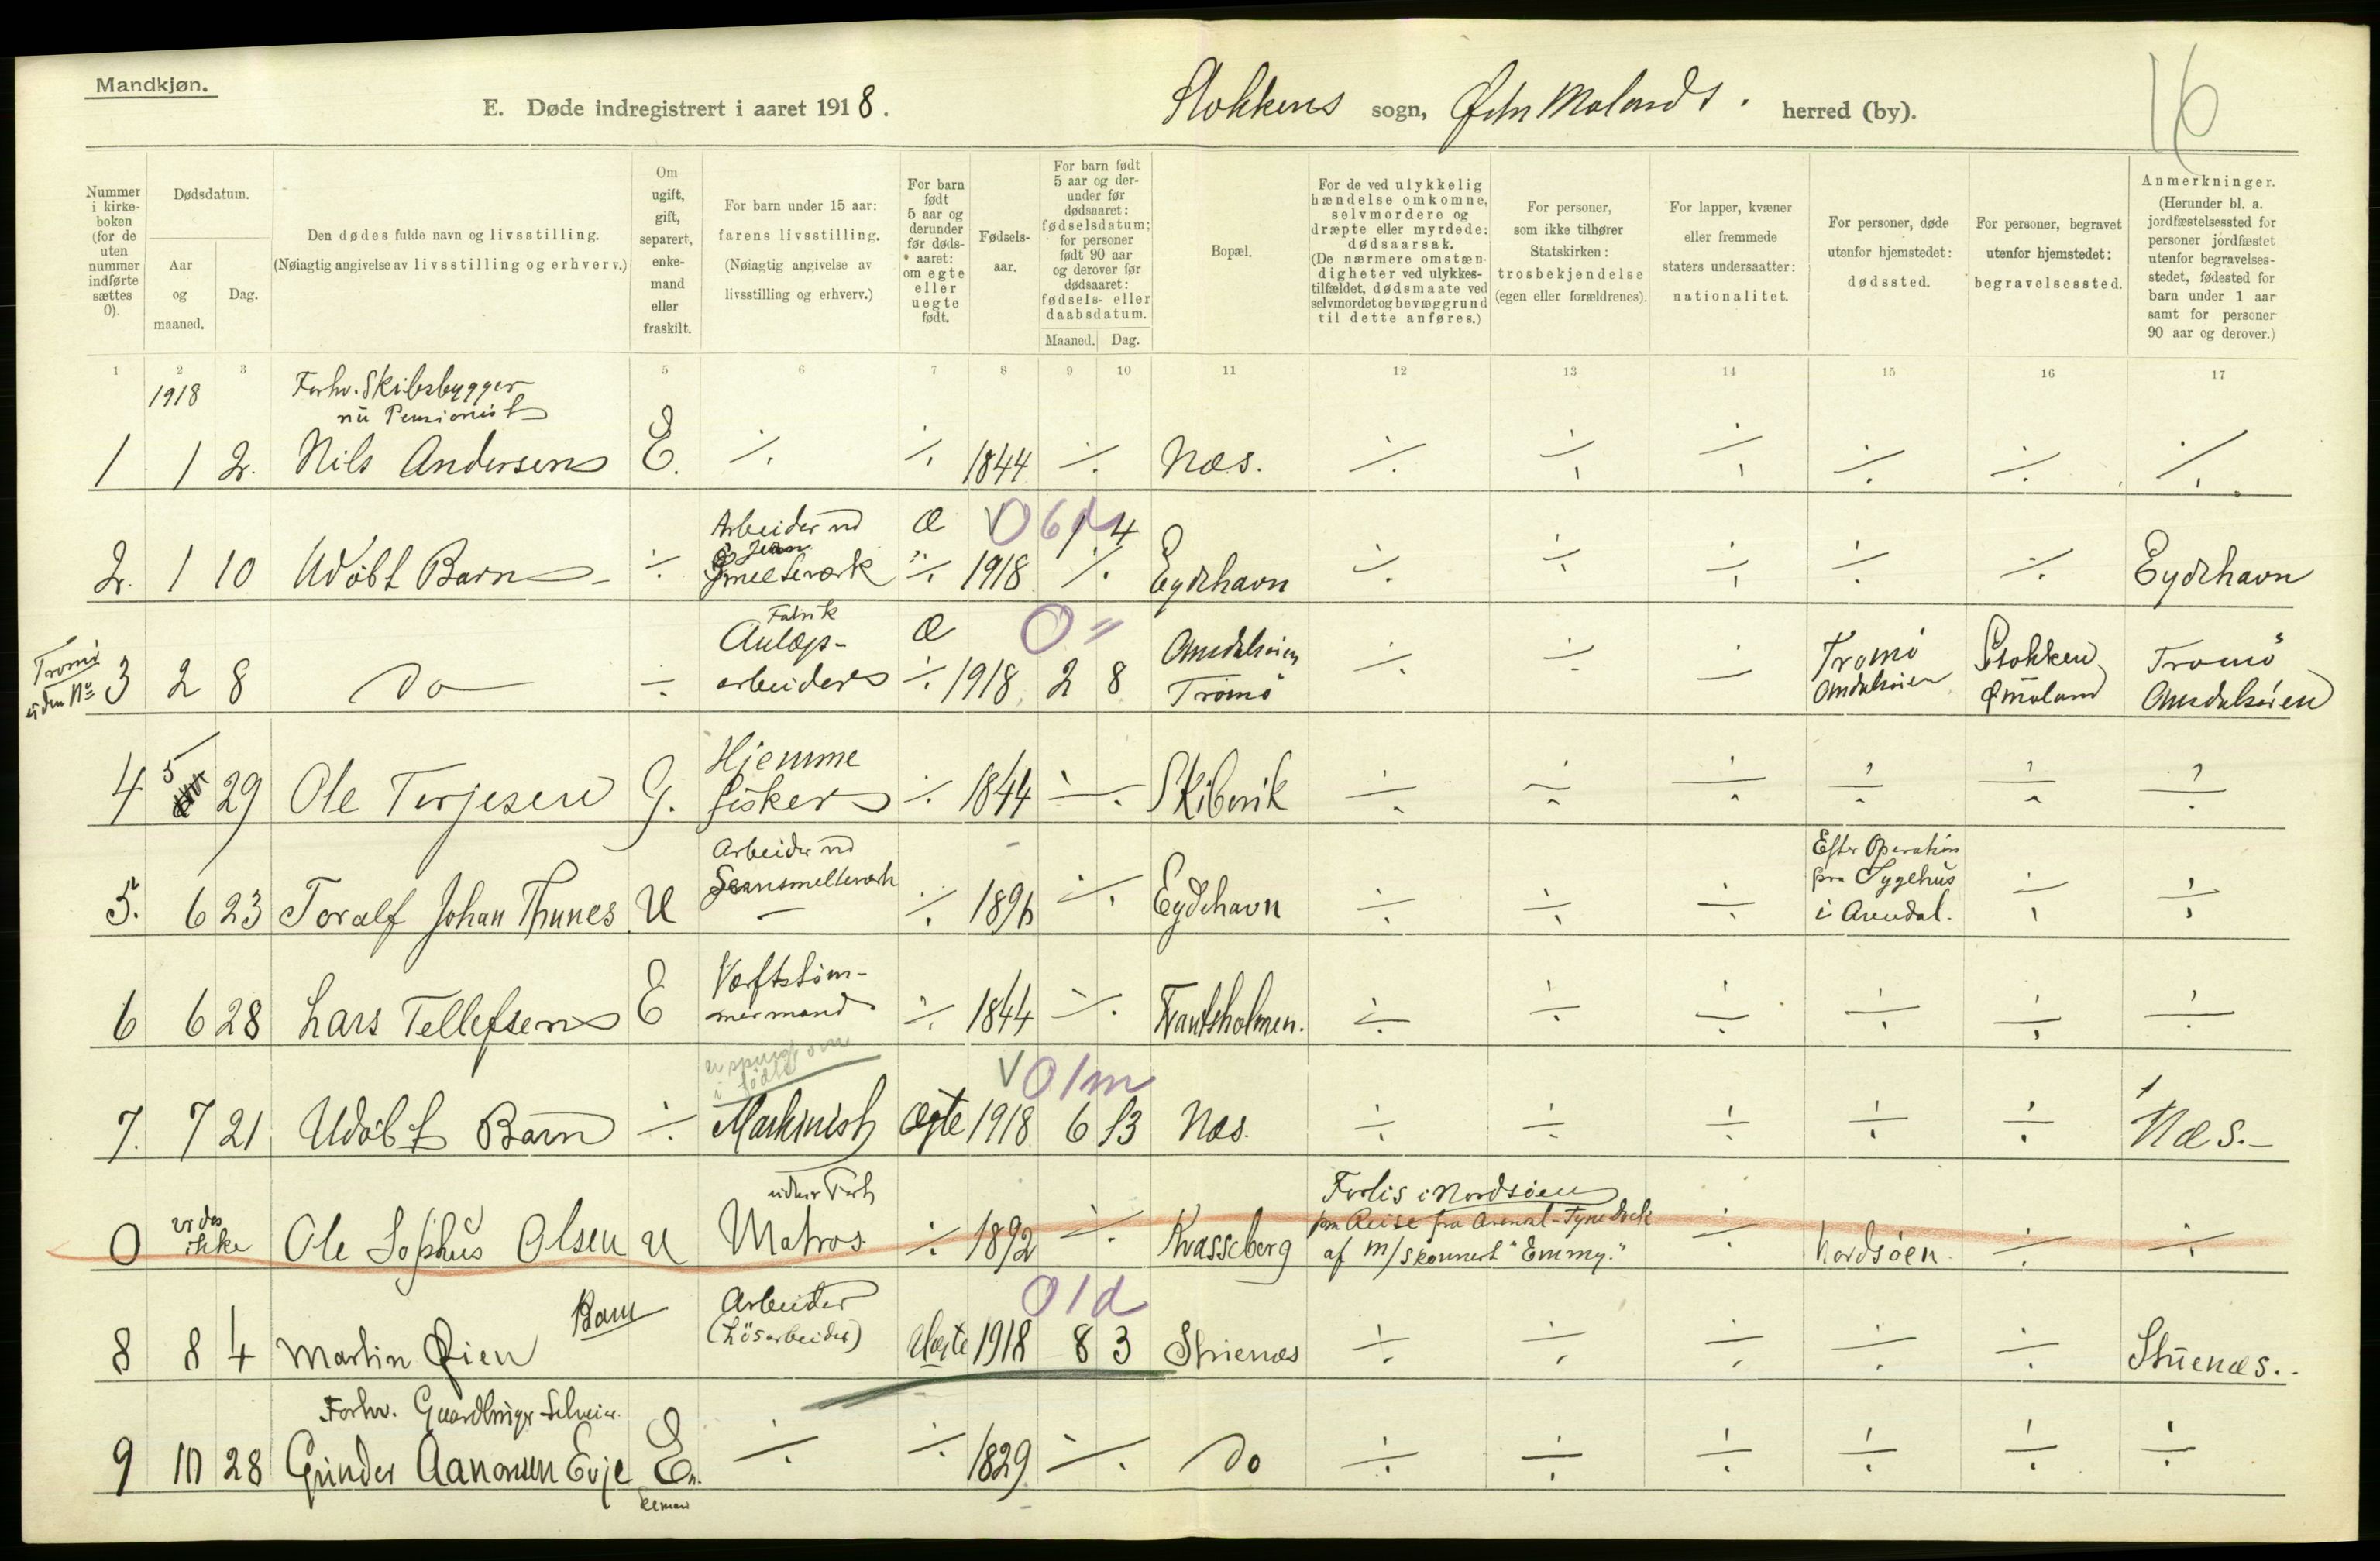 Mandkjøn.
E. Døde indregistrert i aaret 1918.
Stokkens sogn, Østr Molands. herred (by).
16
Nummer i kirke-boken (for de uten nummer indførte sættes 0).
Dødsdatum.
Aar og maaned.
Dag.
Den dødes fulde navn og livsstilling.
(Nøiagtig angivelse av livsstilling og erhverv.)
Om ugift, gift, separert, enke-mand eller fraskilt.
For barn under 15 aar: farens livsstilling. (Nøiagtig angivelse av livsstilling og erhverv.)
For barn født 5 aar og derunder før døds-aaret: om egte eller uegte født.
Fødsels-aar.
For barn født 5 aar og der-under før dødsaaret: fødselsdatum; for personer født 90 aar og derover før dødsaaret: fødsels- eller daabsdatum.
Maaned. Dag.
Bopæl.
For de ved ulykkelig hændelse omkomne, selvmordere og dræpte eller myrdede: dødsaarsak. (De nærmere omstæn-digheter ved ulykkes-tilfældet, dødsmaate ved selvmordet og bevæggrund til dette anføres.)
For personer, som ikke tilhører Statskirken: trosbekjendelse (egen eller forældrenes).
For lapper, kvæner eller fremmede staters undersaatter: nationalitet.
For personer, døde utenfor hjemstedet: dødssted.
For personer, begravet utenfor hjemstedet: begravelsessted.
Anmerkninger. (Herunder bl. a. jordfæstelsessted for personer jordfæstet utenfor begravelses-stedet, fødested for barn under 1 aar samt for personer 90 aar og derover.)
1 2 3 5 6 7 8 9 10 11 12 13 14 15 16 17
1918 Forhv. Skibsbygger
nu Pensionist
1 1 2. Nils Andersen E. ÷ ÷ 1844 ÷ Næs. ÷ ÷ ÷ ÷ ÷ ÷
Arbeider vd Æ V
2. 1 10 Udöbt Barn ÷ Smelteværk ÷ 1918 ÷ Eydehavn ÷ ÷ ÷ ÷ ÷ Eydehavn
Fabrik
Tromö Anlægs- Æ 0 Amdalsöien Tromö Stokken Tromö
uden No 3 2 8 Do ÷ arbeider ÷ 1918 2 8 Tromö ÷ ÷ ÷ Amdalsöien Ø Moland Amdalsöien
5 Hjemme
4 29 Ole Terjesen G. fisker ÷ 1844 ÷ Skibevik ÷ ÷ ÷ ÷ ÷ ÷
Arbeider vd Efter Operation
Jernsmelteverk paa Sygehus
5. 6 23 Toralf Johan Thunes U ÷ 1896 ÷ Eydehavn ÷ ÷ ÷ i Arendal. ÷ ÷
Værftstöm-
6 6 28 Lars Tellefsen E mermand ÷ 1844 ÷ Frantsholmen. ÷ ÷ ÷ ÷ ÷ ÷
V 0 1 m
7. 7 21 Udöbt Barn ÷ Maskinist Ægte 1918 6 13 Næs. ÷ ÷ ÷ ÷ ÷ Næs.
Forlis i Nordsöen
vides paa Reise fra Arendal - Tyne Dock
0 ikke Ole Sophus Olsen U Matros ÷ 1892 ÷ Kvasseberg af M/Skonnert "Emmy." ÷ Nordsöen. ÷ ÷
Barn Arbeider 0 1 d
8 8 4 Martin Øien (Lösarbeider) Uægte 1918 8 3 Stuenæs ÷ ÷ ÷ ÷ ÷ Stuenæs.
Forhv. Gaardbruger
9 10 28 Gunder Aanonsen Evje En. ÷ ÷ 1829 ÷ Do ÷ ÷ ÷ ÷ ÷ ÷
kemand